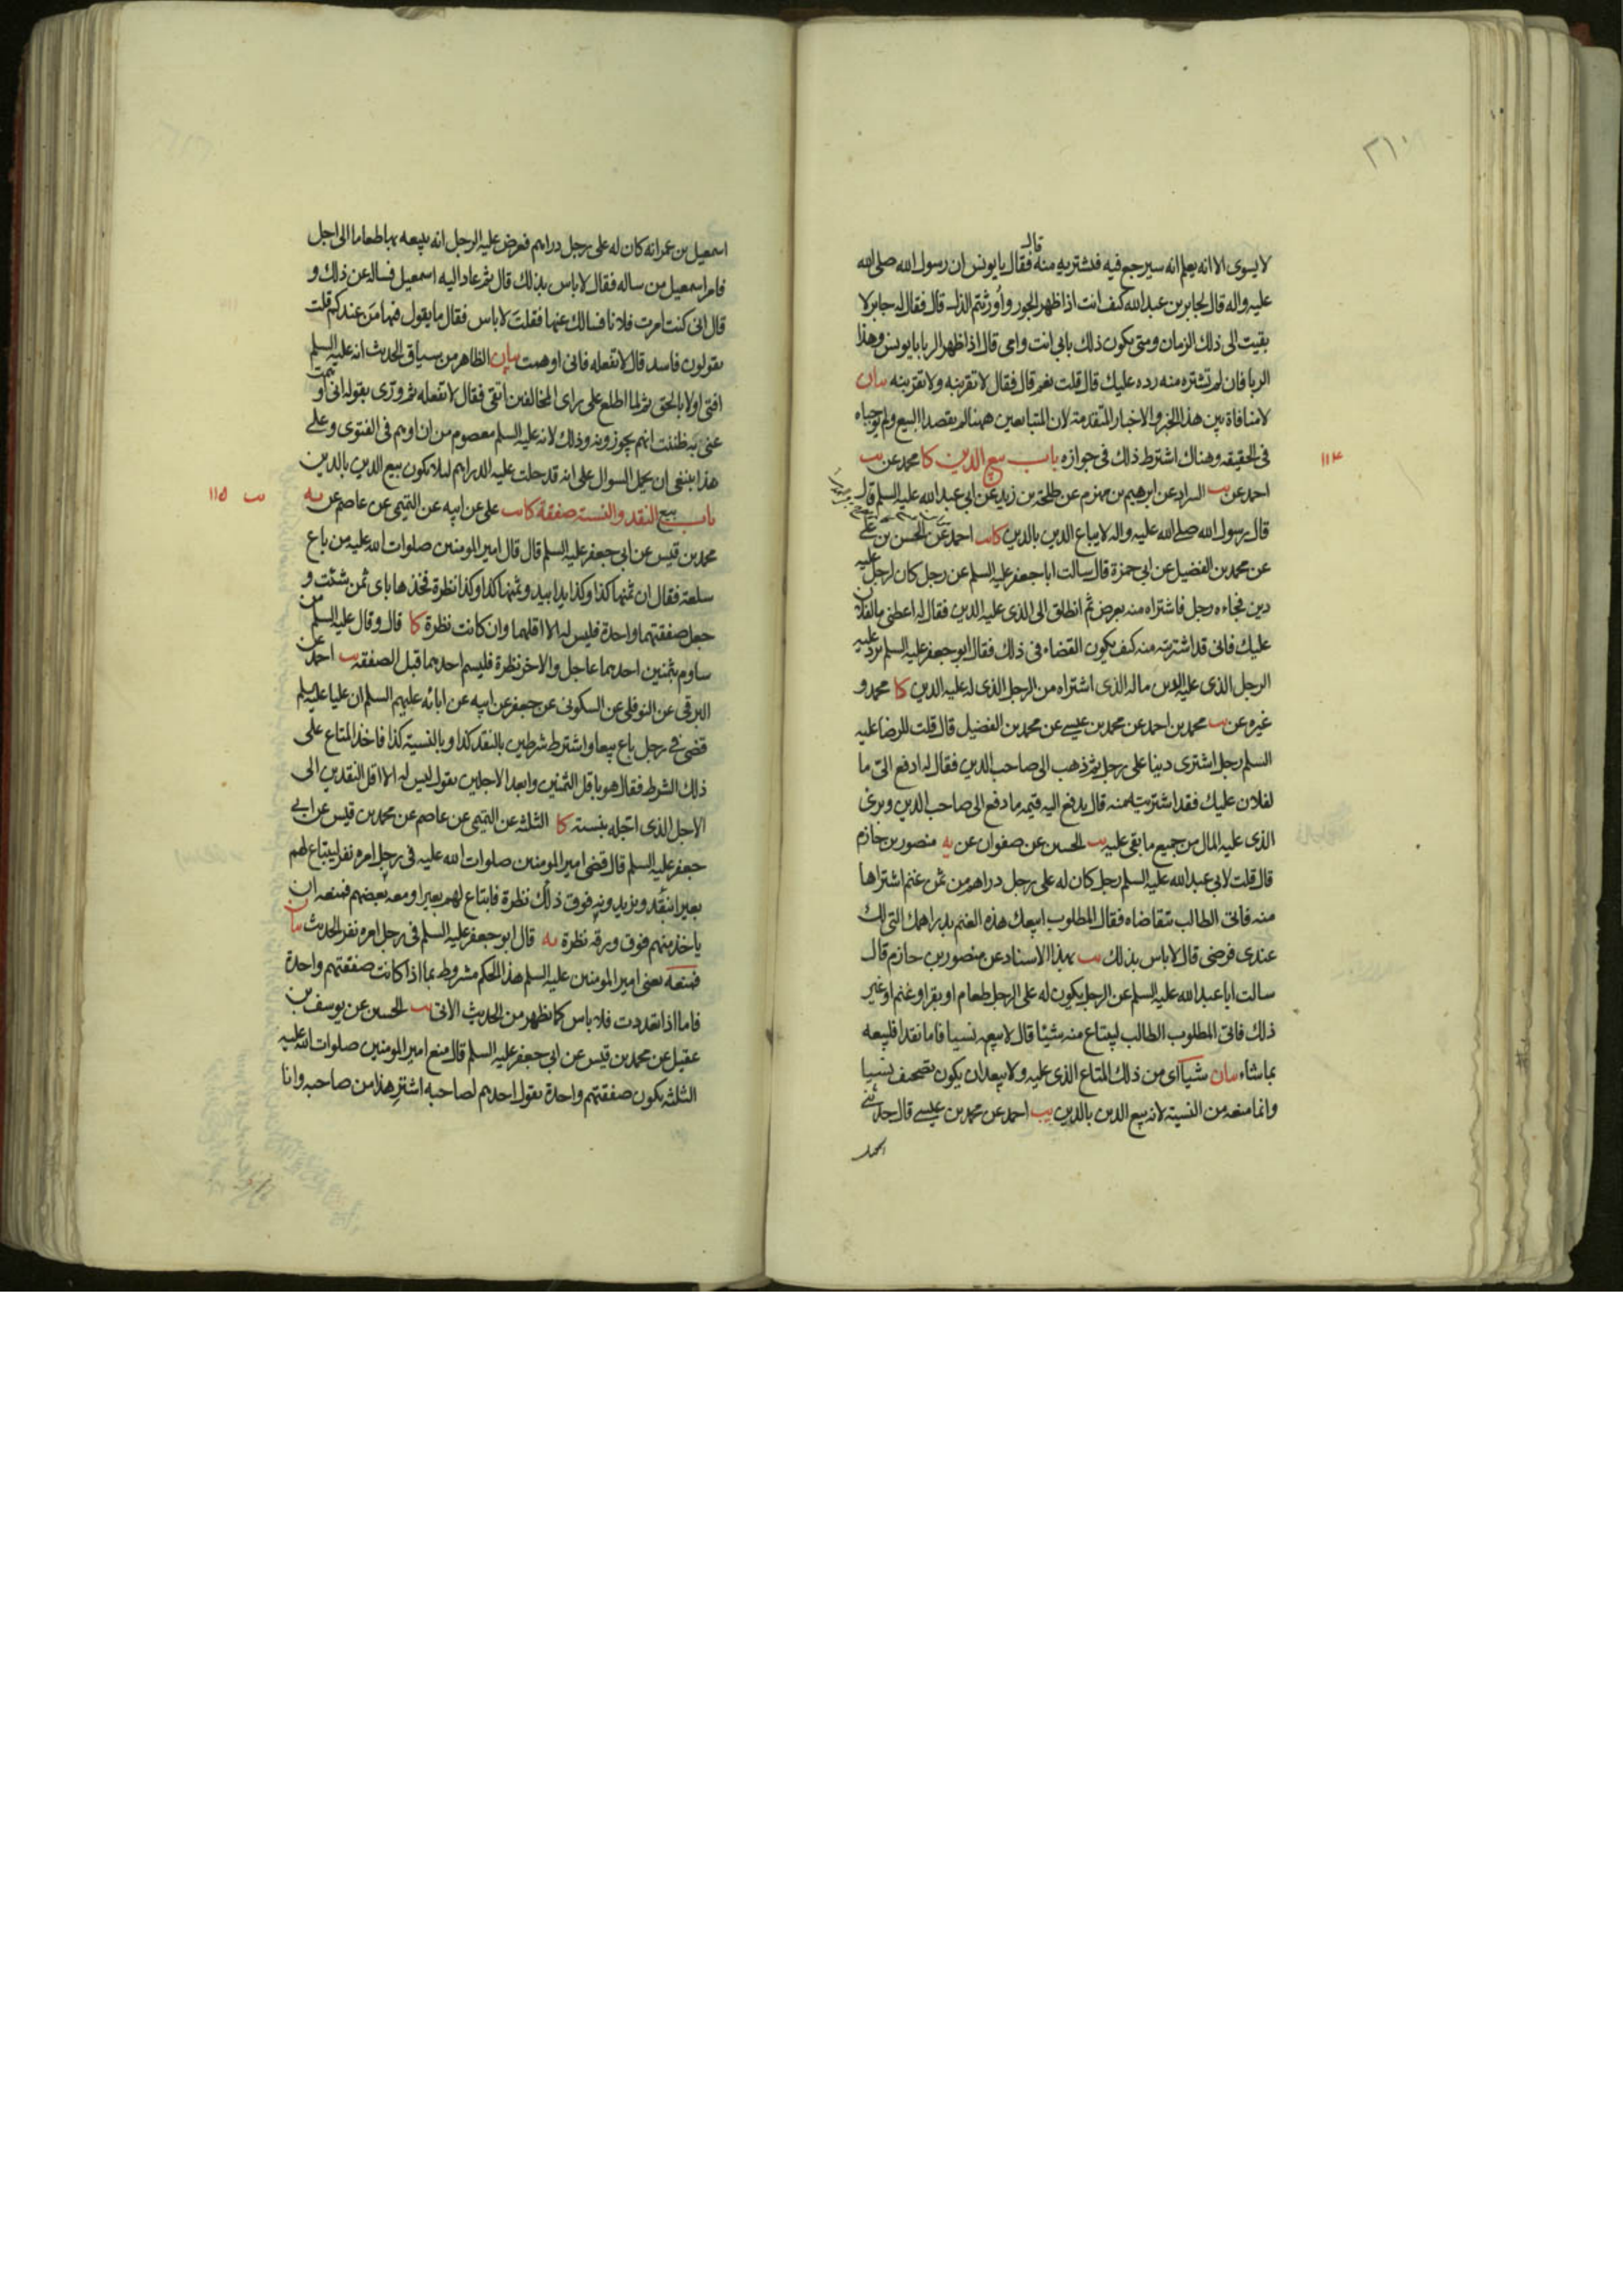 ٢١٠
قال
لا يسوى الا انه يعلم انه سيرجع فيه فيشتريه منه فقال يا يونس ان رسول الله صلى الله
عليه واله قال لجابر بن عبد الله كيف انت اذا ظهر الجور واورثتم الذل قال فقال له جابر لا
بقيت الى ذلك الزمان ومتى يكون ذلك بابي انت وامي قال اذا ظهر الربا يا يونس وهذا
الربا فان لم تشتره منه رده عليك قال قلت نعم قال فقال لا تقربنه ولا تقربنه بيان
لا منافاة بين هذا الخبر والاخبار المتقدمة لان المتبايعين ههنا لم يقصدا البيع ولم يوجباه
في الحقيقه وهناك اشترط ذلك في جوازه باب بيع الدين كا محمد عن يب
١١٤
احمد عن يب السراد عن ابرهيم بن مهزم عن طلحة بن زيد عن ابي عبد الله عليه السلم قال
قال رسول الله صلى الله عليه واله لا يباع الدين بالدين كا يب احمد عن الحسن بن علي
عن محمد بن الفضيل عن ابي حمزة قال سالت ابا جعفر عليه السلم عن رجل كان لرجل عليه
دين فجاءه رجل فاشتراه منه بعرض ثم انطلق الى الذي عليه الدين فقال له اعطني ما لفلان
عليك فاني قد اشتريته منه كيف يكون القضاء في ذلك فقال ابو جعفر عليه السلم يرد عليه
الرجل الذي عليه الدين ماله الذي اشتراه من الرجل الذي له عليه الدين كا محمد و
غيره عن يب محمد بن احمد عن محمد بن عيسى عن محمد بن الفضيل قال قلت للرضا عليه
السلم رجل اشترى دينا على رجل ثم ذهب الى صاحب الدين فقال له ادفع الي ما
لفلان عليك فقد اشتريته منه قال يدفع اليه قيمه ما دفع الى صاحب الدين وبرئ
الذي عليه المال من جميع ما بقي عليه يب الحسين عن صفوان عن يه منصور بن حازم
قال قلت لابي عبد الله عليه السلم رجل كان له على رجل دراهم من ثمن غنم اشتراها
منه فاتى الطالب يتقاضاه فقال المطلوب ابيعك هذه الغنم بدراهمك التي لك
عندي فرضي قال لا باس بذلك يب بهذا الاسناد عن منصور بن حازم قال
سالت ابا عبد الله عليه السلم عن الرجل يكون له على الرجل طعام او بقر او غنم او غير
ذلك فاتى المطلوب الطالب ليبتاع منه شيئا قال لا يبيعه نسيا فاما نقدا فليبعه
بما شاء بيان شيئا اي من ذلك المتاع الذي عليه ولا يبعد ان يكون تصحيف نسيا
وانما منعه من النسية لانه بيع الدين بالدين يب احمد عن محمد بن عيسى قال حدثني
اسمعيل بن عمر انه كان له على رجل دراهم فعرض عليه الرجل انه يبيعه بها طعاما الى اجل
فامر اسمعيل من ساله فقال لا باس بذلك قال ثم عاد اليه اسمعيل فساله عن ذلك و
قال اني كنت امرت فلانا فسالك عنها فقلت لا باس فقال ما يقول فيها من عندكم قلت
يقولون فاسد قال لا تفعله فاني اوهمت بيان الظاهر من سياق الحديث انه عليه السلم
افتى اولا بالحق ثم لما اطلع على راى المخالفين اتقى فقال لا تفعله ثم ورى بقوله اني اوهمت
عنى به ظننت انهم يجوزونه وذلك لانه عليه السلم معصوم من ان اوهم في الفتوى وعلى
هذا ينبغي ان يحمل السوال على انه قد حلت عليه الدراهم ليلا يكون بيع الدين بالدين
باب بيع النقد والنسية صفقة كا يب علي عن ابيه عن التميمي عن عاصم عن يه
يب ١١٥
محمد بن قيس عن ابي جعفر عليه السلم قال قال امير المومنين صلوات الله عليه من باع
سلعة فقال ان ثمنها كذا وكذا يدا بيد وثمنها كذا وكذا نظرة فخذها باي ثمن شئت و
جعل صفقتهما واحدة فليس له الا اقلهما وان كانت نظرة كا قال وقال عليه السلم من
ساوم بثمنين احدهما عاجل والاخر نظرة فليسم احدهما قبل الصفقه يب احمد عن
البرقي عن النوفلي عن السكوني عن جعفر عن ابيه عن ابائه عليهم السلم ان عليا عليه السلم
قضى في رجل باع بيعا واشترط شرطين بالنقد كذا وبالنسية كذا فاخذ المتاع على
ذلك الشرط فقال هو باقل الثمنين وابعد الاجلين يقول ليس له الا اقل النقدين الى
الاجل الذي اجله بنسية كا الثلثة عن التميمي عن عاصم عن محمد بن قيس عن ابي
جعفر عليه السلم قال قضى امير المومنين صلوات الله عليه في رجل امره نفر ليبتاع لهم
بعيرا بنقد ويزيدونه فوق ذلك نظرة فابتاع لهم بعيرا ومعه بعضهم فمنعه ان
ياخذ منهم فوق ورقه نظرة يه قال ابو جعفر عليه السلم في رجل امره نفر الحديث بيان
فمنعه يعني امير المومنين عليه السلم هذا الحكم مشروط بما اذا كانت صفقتهم واحدة
فاما اذا تعددت فلا باس كما يظهر من الحديث الاتي يب الحسين عن يوسف بن
عقيل عن محمد بن قيس عن ابي جعفر عليه السلم قال منع امير المومنين صلوات الله عليه
الثلثه يكون صفقتهم واحدة يقول احدهم لصاحبه اشتر هذا من صاحبه وانا